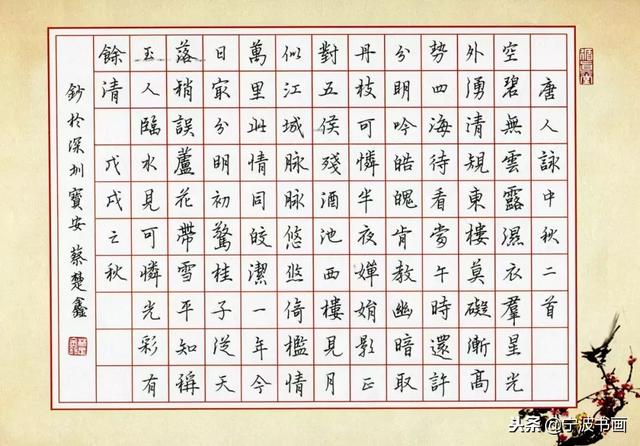 唐人詠中秋二首
空碧無雲露濕衣羣星光
外湧清規東樓莫礙漸高
勢四海待看當午時還許
分明吟皓魄肯教幽暗取
丹枝可憐半夜嬋娟影正
對五侯殘酒池西樓見月
似江城脉脉悠悠倚檻情
萬里此情同皎潔一年今
日冣分明初驚桂子從天
落稍誤蘆花帶雪平知稱
玉人臨水見可憐光彩有
餘清 戊戌之秋
鈔於深圳寶安蔡楚鑫
头条@宁波书画